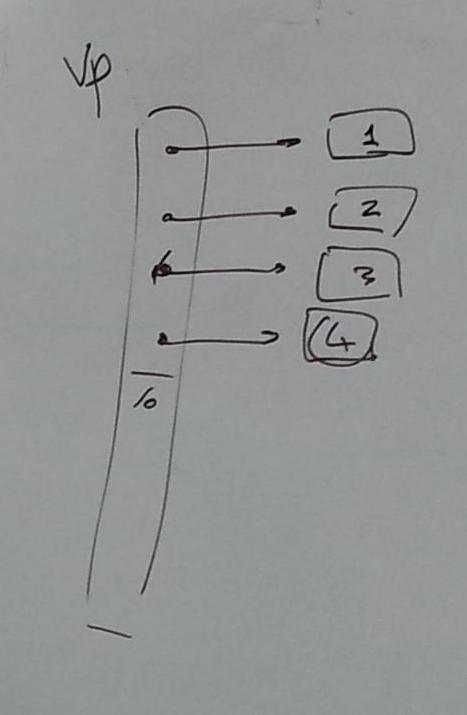 Vp
1
2
3
4
\0